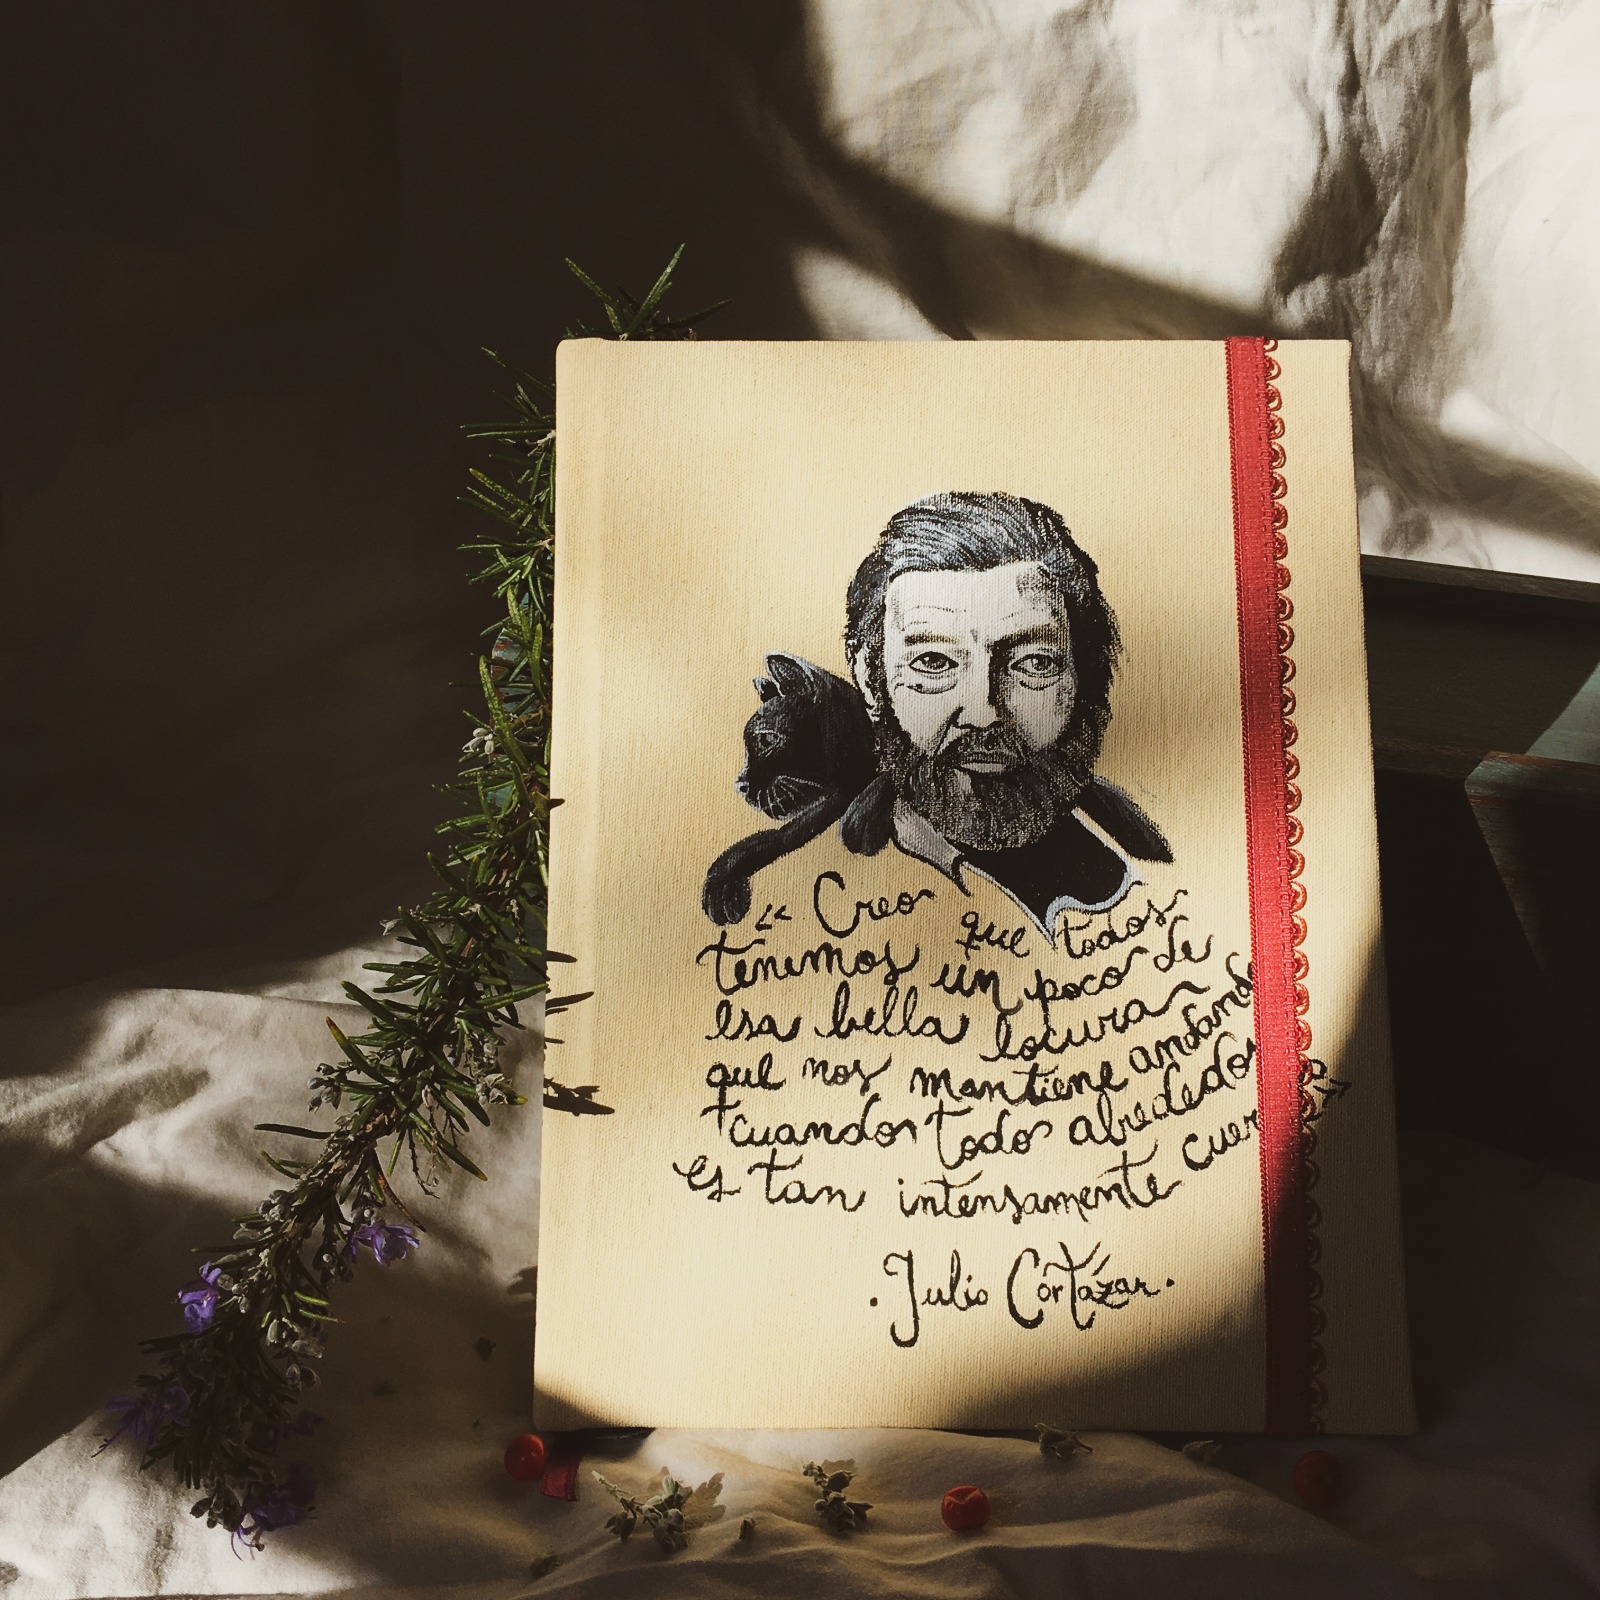 « Creo que todos
tenemos un poco de
esa bella locura
que nos mantiene andando
cuando todo alrededor
es tan intensamente cuer
. Julio Cortázar .